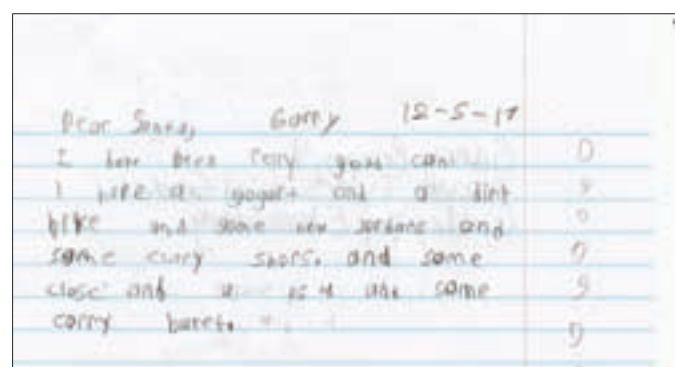 Dear Santa, Garry 12-5-17
I have been very good can
I have a gogart and a dirt
bike and some new jordans and
some curry shors. and some
close and a ps 4 and some
corry